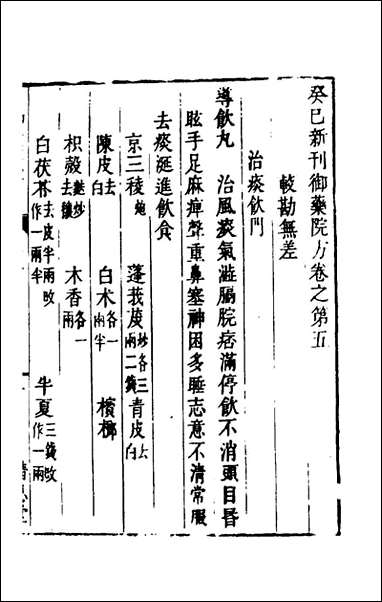 癸巳新刊御藥院方卷之第五
較勘無差
治痰飲門
導飲丸 治風痰氣澁膈脘痞滿停飲不消頭目昬
眩手足麻痺聲重鼻塞神困多睡志意不清常服
去痰涎進飲食
京三稜炮 蓬莪茂炒各三兩二錢 青皮去白
陳皮去白 白木各一兩半 檳榔
枳殻去穰麩炒 木香各一兩
白茯苓去皮半兩改作一兩半 半夏三錢改作一兩